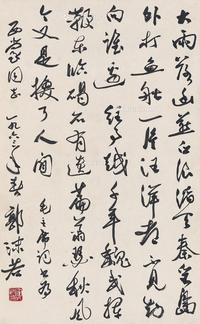 大雨落幽燕白浪滔天秦皇島
外打魚船一片汪洋都不見知
向誰邊往事越千年魏武揮
鞭東臨碣石有遺篇蕭瑟秋風
今又是換了人間 毛主席詞書為
西蒙同志 一九六 年春 郭沫若